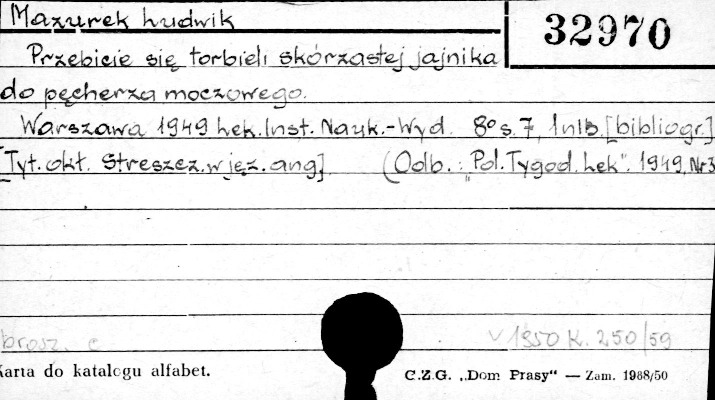 Mazurek Ludwik
32970
Przebicie się torbieli skórzastej jajnika
do pęcherza moczowego.
Warszawa 1949 Lek. Inst. Nauk.-Wyd. 8º s. 7, 1 nlb. [bibliogr.]
[Tyt. okł. Streszcz. w jęz. ang]. (Odb.: "Pol. Tygod. Lek". 1949, Nr 3
brosz. c
v 1950 K. 250/59
Karta do katalogu alfabet.
C.Z.G. „Dom Prasy" — Zam. 1988/50